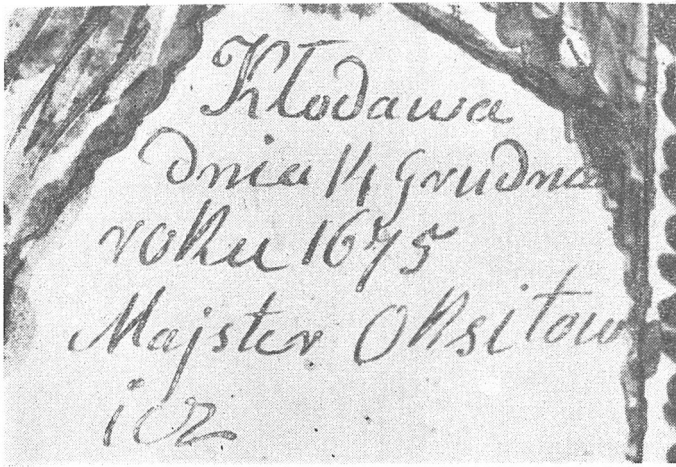 Kłodawa
dnia 14 Grudnia
roku 1675
Majster Oksitow
icz